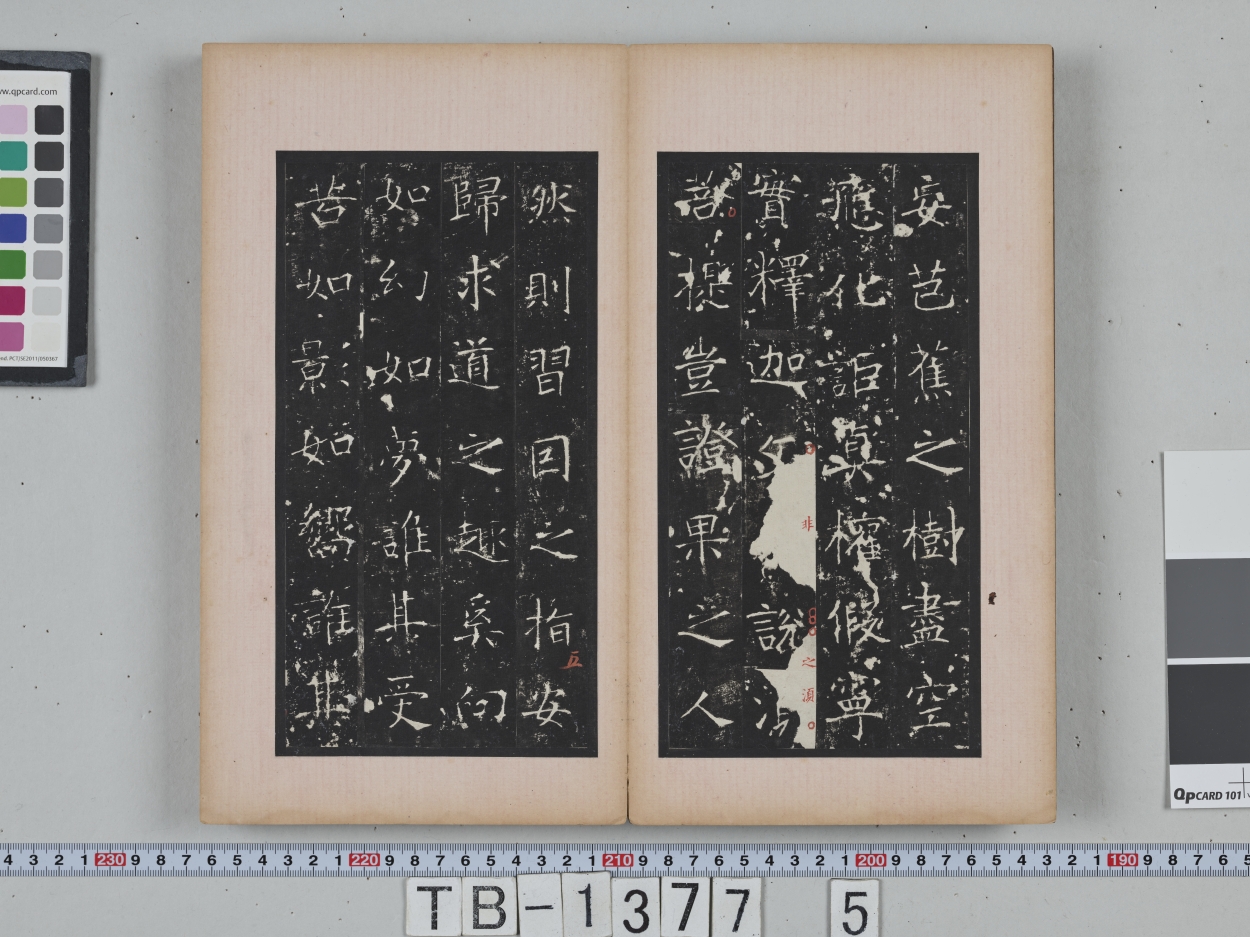 妄芭蕉之樹盡空
應化詎真權假寧
實釋迦文說法
非
之湏
菩提豈證果之人
然則習因之指安
五
歸求道之趣奚向
如幻如夢誰其受
苦如影如響誰其
www.qpcard.com
QPCARD 101
4 3 2 1 230 9 8 7 6 5 4 3 2 1 220 9 8 7 6 5 4 3 2 1 210 9 8 7 6 5 4 3 2 1 200 9 8 7 6 5 4 3 2 1 190 9 8 7 6 5
TB-1377 5